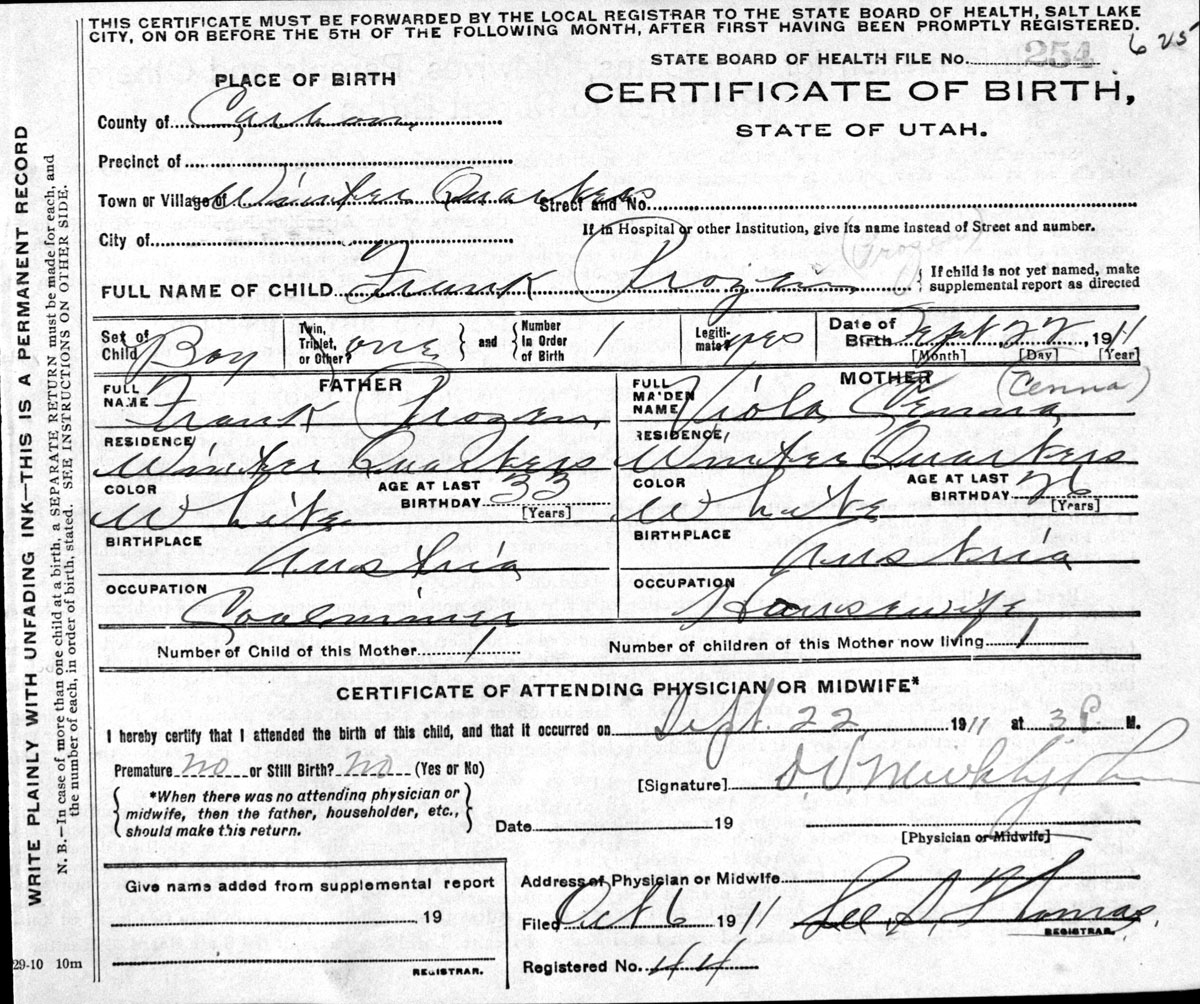 THIS CERTIFICATE MUST BE FORWARDED BY THE LOCAL REGISTRAR TO THE STATE BOARD OF HEALTH, SALT LAKE
CITY, ON OR BEFORE THE 5TH OF THE FOLLOWING MONTH, AFTER FIRST HAVING BEEN PROMPTLY REGISTERED.
6 25
STATE BOARD OF HEALTH FILE No. 254
PLACE OF BIRTH
CERTIFICATE OF BIRTH,
STATE OF UTAH.
County of Carbon
Precinct of
Town or Village of Winter Quarters Street and No.
City of
If in Hospital or other Institution, give its name instead of Street and number.
FULL NAME OF CHILD Frank Prozen
If child is not yet named, make
supplemental report as directed
Set of Child Boy
Twin, Triplet, or Other? one
and
Number In Order of Birth 1
Legitimate? yes
Date of Birth Sept 22, 1911
[Month] [Day] [Year]
FATHER
FULL NAME Frank Prozen
RESIDENCE
Winter Quarters
COLOR White
AGE AT LAST BIRTHDAY 33
[Years]
BIRTHPLACE
Austria
OCCUPATION
Coalminer
MOTHER
(Cenna)
FULL MAIDEN NAME Viola
RESIDENCE
Winter Quarters
COLOR White
AGE AT LAST BIRTHDAY 26
[Years]
BIRTHPLACE
Austria
OCCUPATION
Housewife
Number of Child of this Mother 1
Number of children of this Mother now living 1
CERTIFICATE OF ATTENDING PHYSICIAN OR MIDWIFE*
I hereby certify that I attended the birth of this child, and that it occurred on Sept. 22 1911 at 3 P. M.
Premature no or Still Birth? No (Yes or No)
*When there was no attending physician or
midwife, then the father, householder, etc.,
should make this return.
[Signature]
Date 19
[Physician or Midwife]
Give name added from supplemental report
19
REGISTRAR.
Address of Physician or Midwife
Filed Oct 6 1911 Lee S. Thomas
REGISTRAR.
Registered No. 44
29-10 10m
WRITE PLAINLY WITH UNFADING INK—THIS IS A PERMANENT RECORD
N. B.—In case of more than one child at a birth, a SEPARATE RETURN must be made for each, and
the number of each, in order of birth, stated. SEE INSTRUCTIONS ON OTHER SIDE.